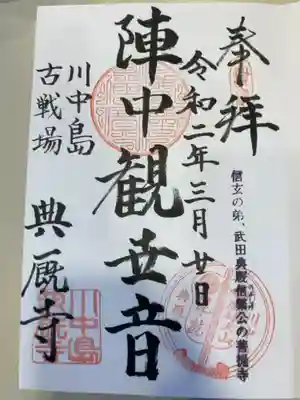 奉拝
信玄の弟、武田典厩信繁公の菩提寺
令和二年三月廿日
陣中観世音
川中島
古戦場
典厩寺